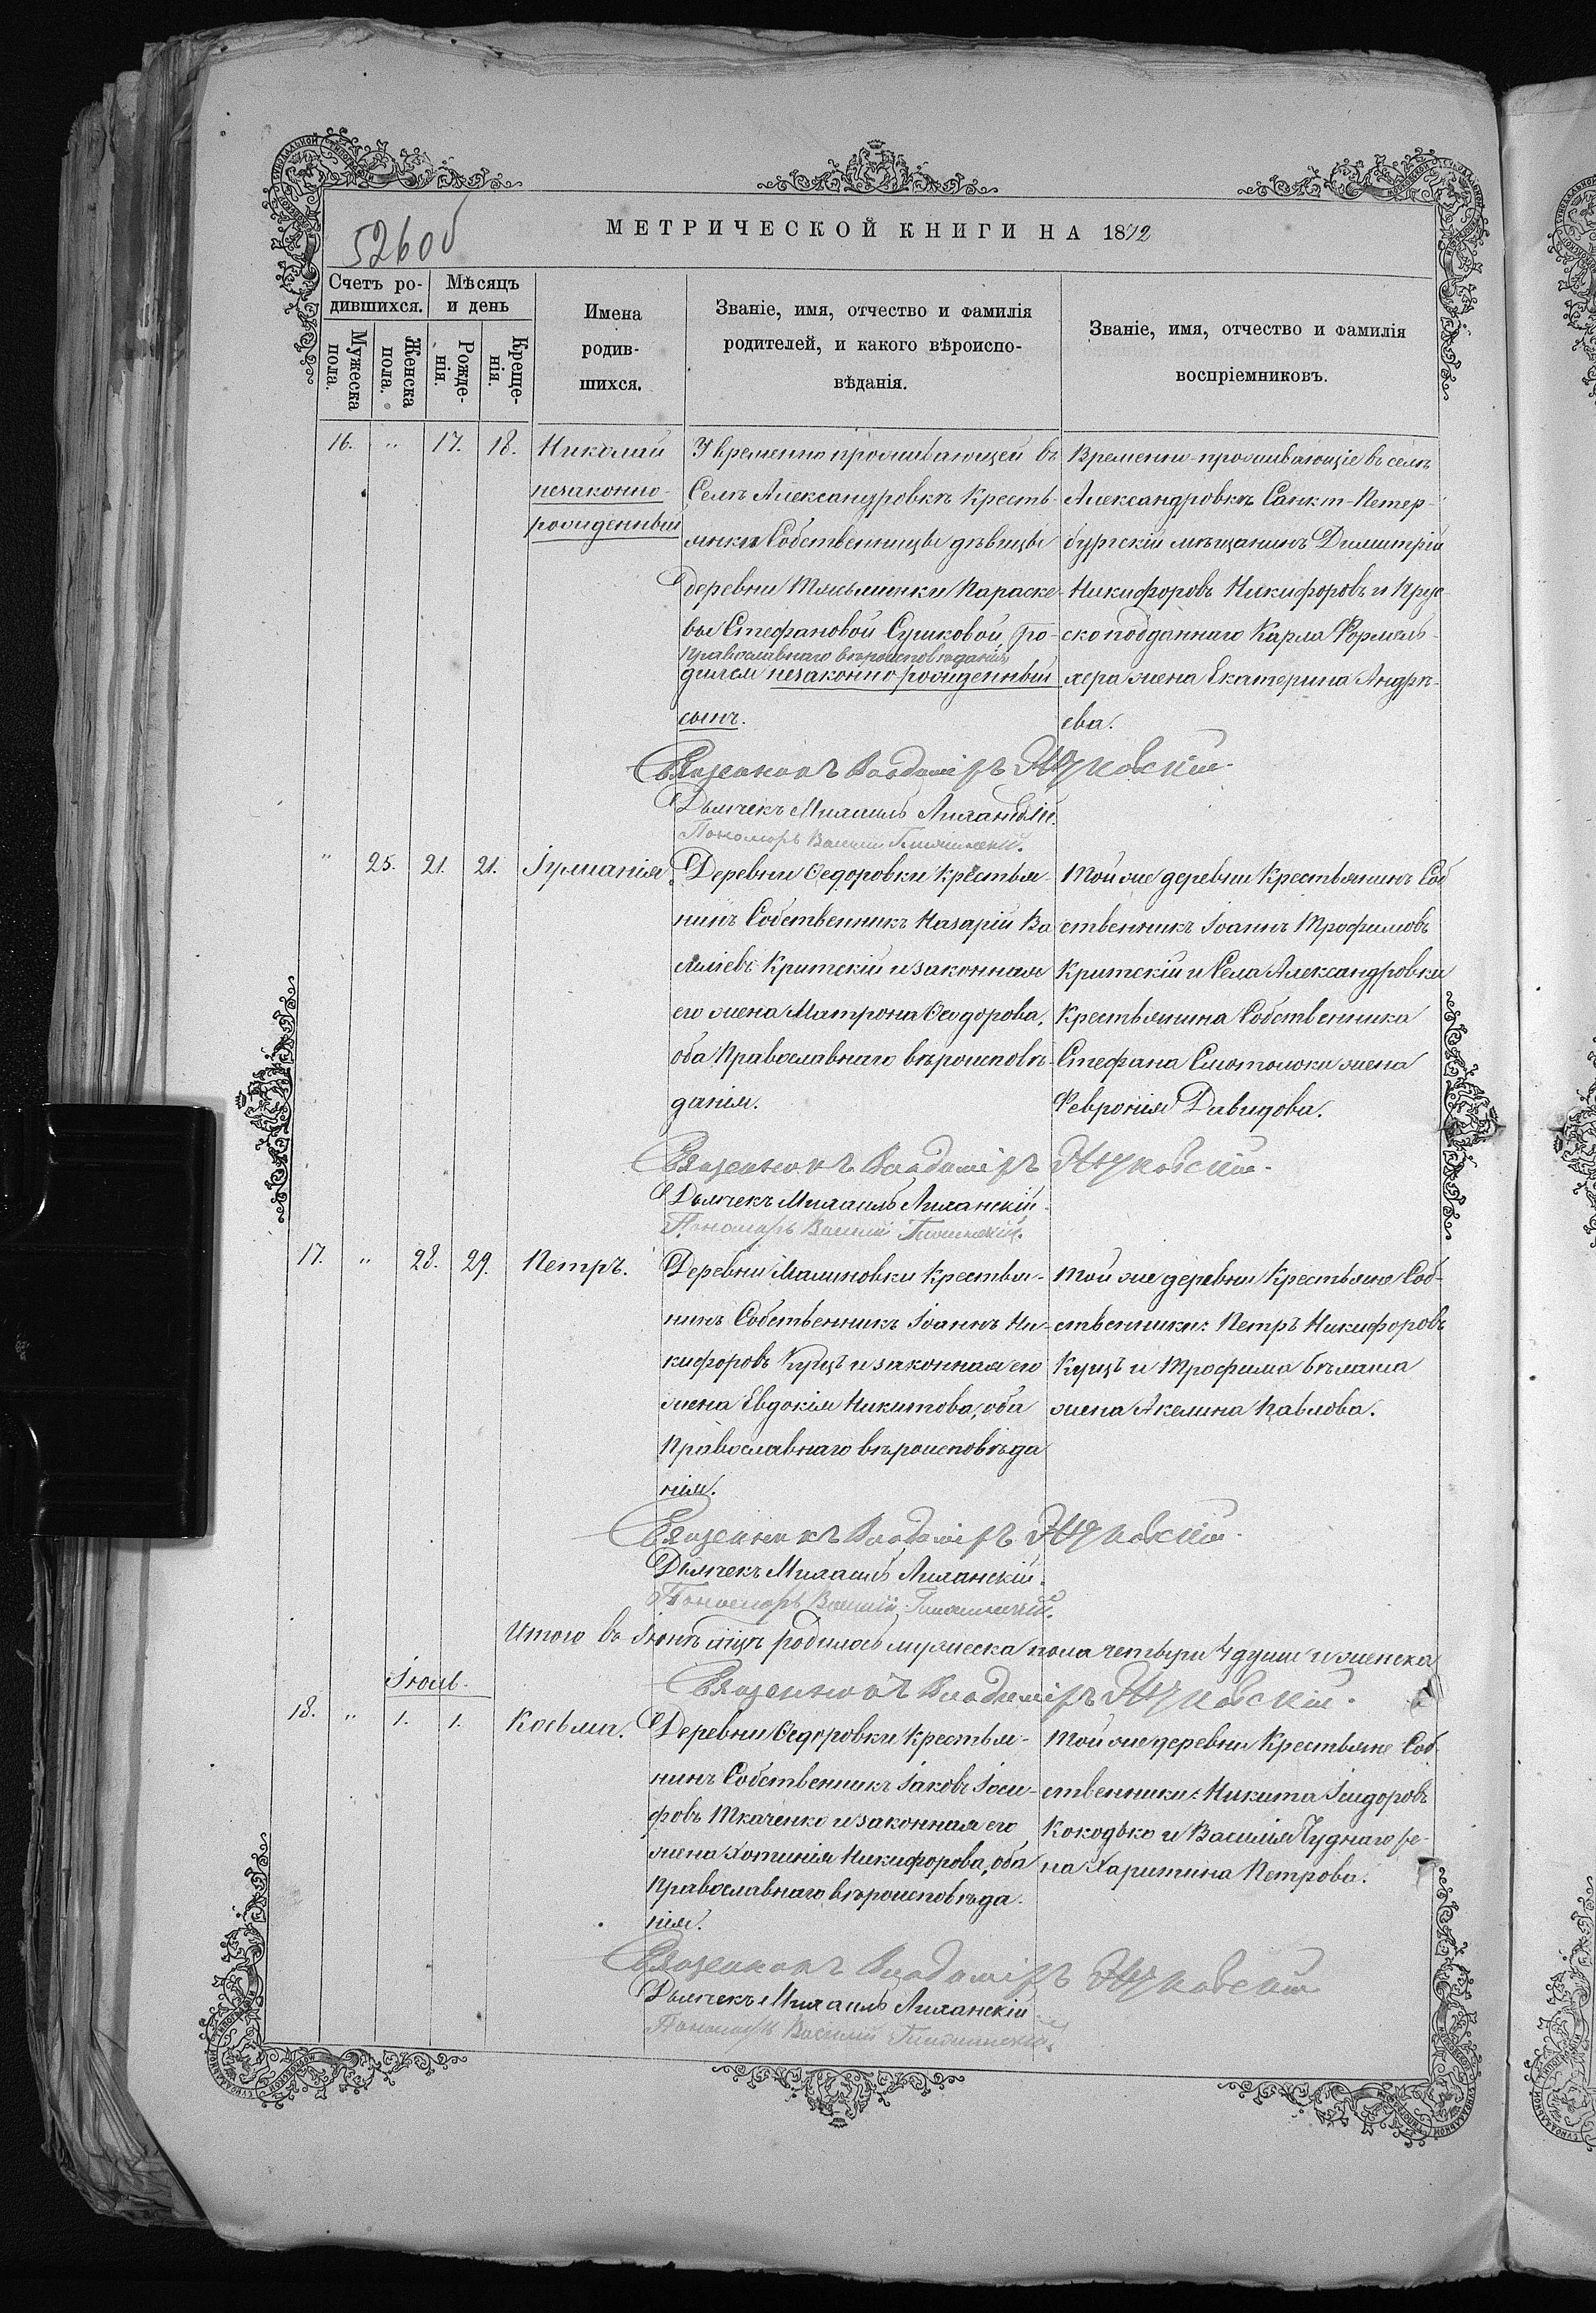 526 об
МЕТРИЧЕСКОЙ КНИГИ НА 1872
Счетъ ро-
дившихся.
Мѣсяцъ
и день
Мужеска
пола.
Женска
пола.
Рожде-
нія.
Креще-
нія.
Имена
родив-
шихся.
Званіе, имя, отчество и фамилія
родителей, и какого вѣроиспо-
вѣданія.
Званіе, имя, отчество и фамилія
воспріемниковъ.
16. " 17. 18.
Николай
незаконно-
рожденный
У временно проживающей въ
Селѣ Александровкѣ Кресть-
янки Собственницы дѣвицы
деревни Параске-
вы Стефановой Сушковой, ро-
Православнаго вѣроисповѣданія
дился незаконно-рожденный
сынъ.
Временно-проживающіе въ селѣ
Александровкѣ Санкт-Петер-
бургскій мѣщанинъ Димитрій
Никифоровъ Никифоровъ и Прус-
ско подданнаго Карла
жена Екатерина Андрѣ-
ева.
Священникъ Владиміръ Жуковскій.
Дьячекъ Михаилъ Лиханскій.
Пономарь Василій
" 25. 21. 21.
Іуліанія.
Деревни Ѳедоровки Крестья-
нинъ Собственникъ Назарій Ва
силіевъ Критскій и законная
его жена Матрона Ѳеодорова,
оба Православнаго вѣроисповѣ-
данія.
Той же деревни Крестьянинъ Соб
ственникъ Іоаннъ Трофимовъ
Критскій и Села Александровки
Крестьянина Собственника
Стефана жена
Февронія Давидова.
Священникъ Владиміръ Жуковскій.
Дьячекъ Михаилъ Лиханскій.
Пономарь Василій
17. " 28. 29.
Петръ.
Деревни Малиновки Крестья-
нинъ Собственникъ Іоаннъ Ни-
кифоровъ Куцъ и законная его
жена Евдокія Никитова, оба
Православнаго вѣроисповѣда
нія.
Той же деревни Крестьяне Соб-
ственники: Петръ Никифоровъ
Куцъ и Трофима Бѣлаша
жена Акелина Павлова.
Священникъ Владиміръ Жуковскій.
Дьячекъ Михаилъ Лиханскій.
Пономарь Василій
Итого въ Іюнѣ м͠цѣ родилось мужеска пола четыри 4 души и женска
Священникъ Владиміръ Жуковскій.
Іюль.
18. " 1. 1.
Косьма.
Деревни Ѳедоровки Крестья-
нинъ Собственникъ Іаковъ Іоси-
фовъ Ткаченко и законная его
жена Хотинія Никифорова, оба
Православнаго вѣроисповѣда
нія.
Той же деревни Крестьяне Соб-
ственники: Никита Ісидоровъ
Кокодѣко и Василія Чуднаго же-
на Харитина Петрова.
Священникъ Владиміръ Жуковскій
Дьячекъ Михаилъ Лиханскій
Пономарь Василій